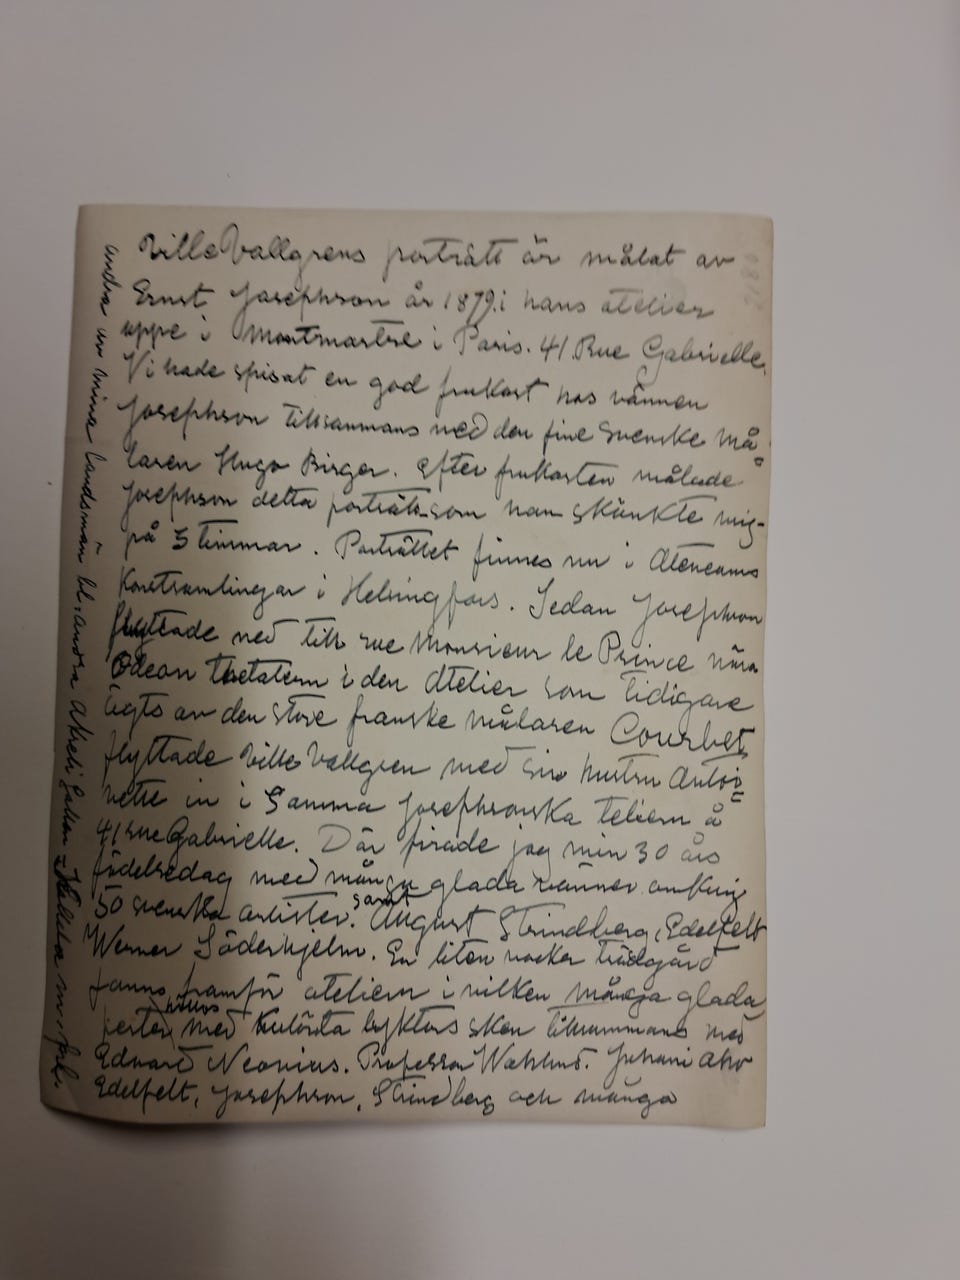 Ville Vallgrens porträtt är målat av
Ernst Josephson år 1879 i hans atelier
uppe i Montmartre i Paris. 41 Rue Gabrielle.
Vi hade spisat en god frukost hos vännen
Josephson tillsammans med den fine svenske må=
laren Hugo Birger. Efter frukosten målade
Josephson detta porträtt som han skänkte mig
på 3 timmar. Porträttet finnes nu i Ateneums
Konstsamlingar i Helsingfors. Sedan Josephson
flyttade ned till rue Monsieur le Prince nära
Odeon theatern i den Atelier som tidigare
ägts av den store franske målaren Courbet
flyttade Ville Vallgren med sin hustru Antoi=
nette in i samma Josephsonska teliern å
41 rue Gabrielle. Där firade jag min 30 års
födelsedag med många glada vänner omkring
50 svenska artister. samt August Strindberg, Edelfelt
Werner Söderhjelm. En liten vacker trädgård
fanns framför ateliern i vilken många glada
fester hölls med kulörta lyktors sken tillsammans med
Edvard Neovius. Professor Wahlund. Juhani Aho
Edelfelt, Josephson, Strindberg och många
andra av mina landsmän bl. andra Akseli Gallen-Kallela m. fl.